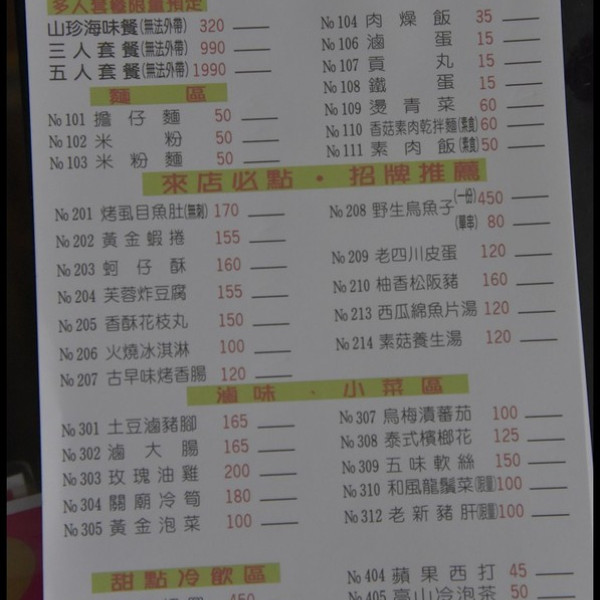 多人套餐限量預定
山珍海味餐(無法外帶) 320
三人套餐(無法外帶) 990
五人套餐(無法外帶) 1990
麵 區
No 101 擔仔麵 50
No 102 米粉 50
No 103 米粉麵 50
No 104 肉燥飯 35
No 106 滷蛋 15
No 107 貢丸 15
No 108 鐵蛋 15
No 109 燙青菜 60
No 110 香菇素肉乾拌麵(素食) 60
No 111 素肉飯(素食) 50
來店必點・招牌推薦
No 201 烤虱目魚肚(無刺) 170
No 202 黃金蝦捲 155
No 203 蚵仔酥 160
No 204 芙蓉炸豆腐 155
No 205 香酥花枝丸 150
No 206 火燒冰淇淋 100
No 207 古早味烤香腸 120
No 208 野生烏魚子 (一份) 450
(單串) 80
No 209 老四川皮蛋 120
No 210 柚香松阪豬 160
No 213 西瓜綿魚片湯 120
No 214 素菇養生湯 120
滷味・小菜區
No 301 土豆滷豬腳 165
No 302 滷大腸 165
No 303 玫瑰油雞 200
No 304 關廟冷筍 180
No 305 黃金泡菜 100
No 307 烏梅漬蕃茄 100
No 308 泰式檳榔花 125
No 309 五味軟絲 150
No 310 和風龍鬚菜(限量) 100
No 312 老新豬肝(限量) 100
甜點冷飲區
450
No 404 蘋果西打 45
No 405 高山冷泡茶 50